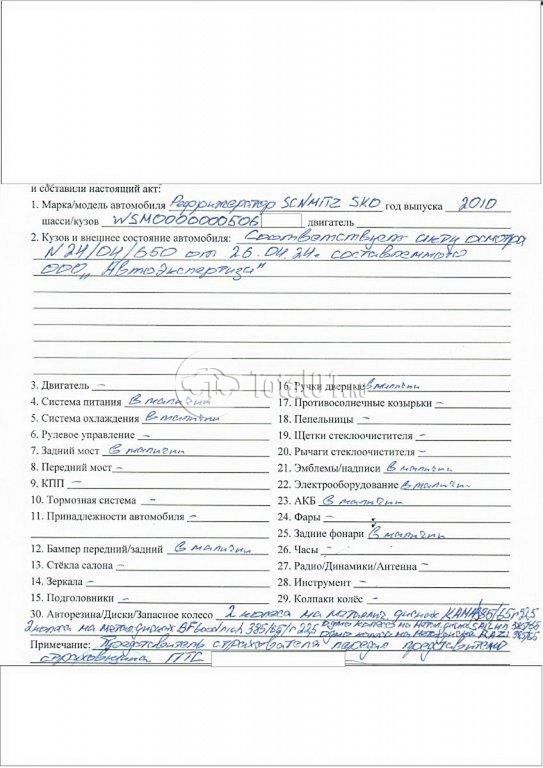 и составили настоящий акт:
1. Марка/модель автомобиля Рефрижератор SCHMITZ SKO год выпуска 2010
шасси/кузов WSM0000000506 двигатель
2. Кузов и внешнее состояние автомобиля: Соответствует акту осмотра
N 24/04/650 от 26.04.24г. составленного
ООО "Автоэкспертиза"
3. Двигатель –
4. Система питания в наличии
5. Система охлаждения в наличии
6. Рулевое управление –
7. Задний мост в наличии
8. Передний мост –
9. КПП –
10. Тормозная система –
11. Принадлежности автомобиля –
12. Бампер передний/задний в наличии
13. Стёкла салона –
14. Зеркала –
15. Подголовники –
16. Ручки дверные в наличии
17. Противосолнечные козырьки –
18. Пепельницы –
19. Щетки стеклоочистителя –
20. Рычаги стеклоочистителя –
21. Эмблемы/надписи в наличии
22. Электрооборудование в наличии
23. АКБ в наличии
24. Фары –
25. Задние фонари в наличии
26. Часы –
27. Радио/Динамики/Антенна –
28. Инструмент –
29. Колпаки колёс –
30. Авторезина/Диски/Запасное колесо 2 колеса на металлич. дисках КАМА 385/65 r22,5
2 колеса на метал дисках 385/65/r 22,5 одно колесо на метал. диске
одно колесо на метал диске
Примечание: Представитель страхователя передал представителю
страховщика ПТС
Total01.ru